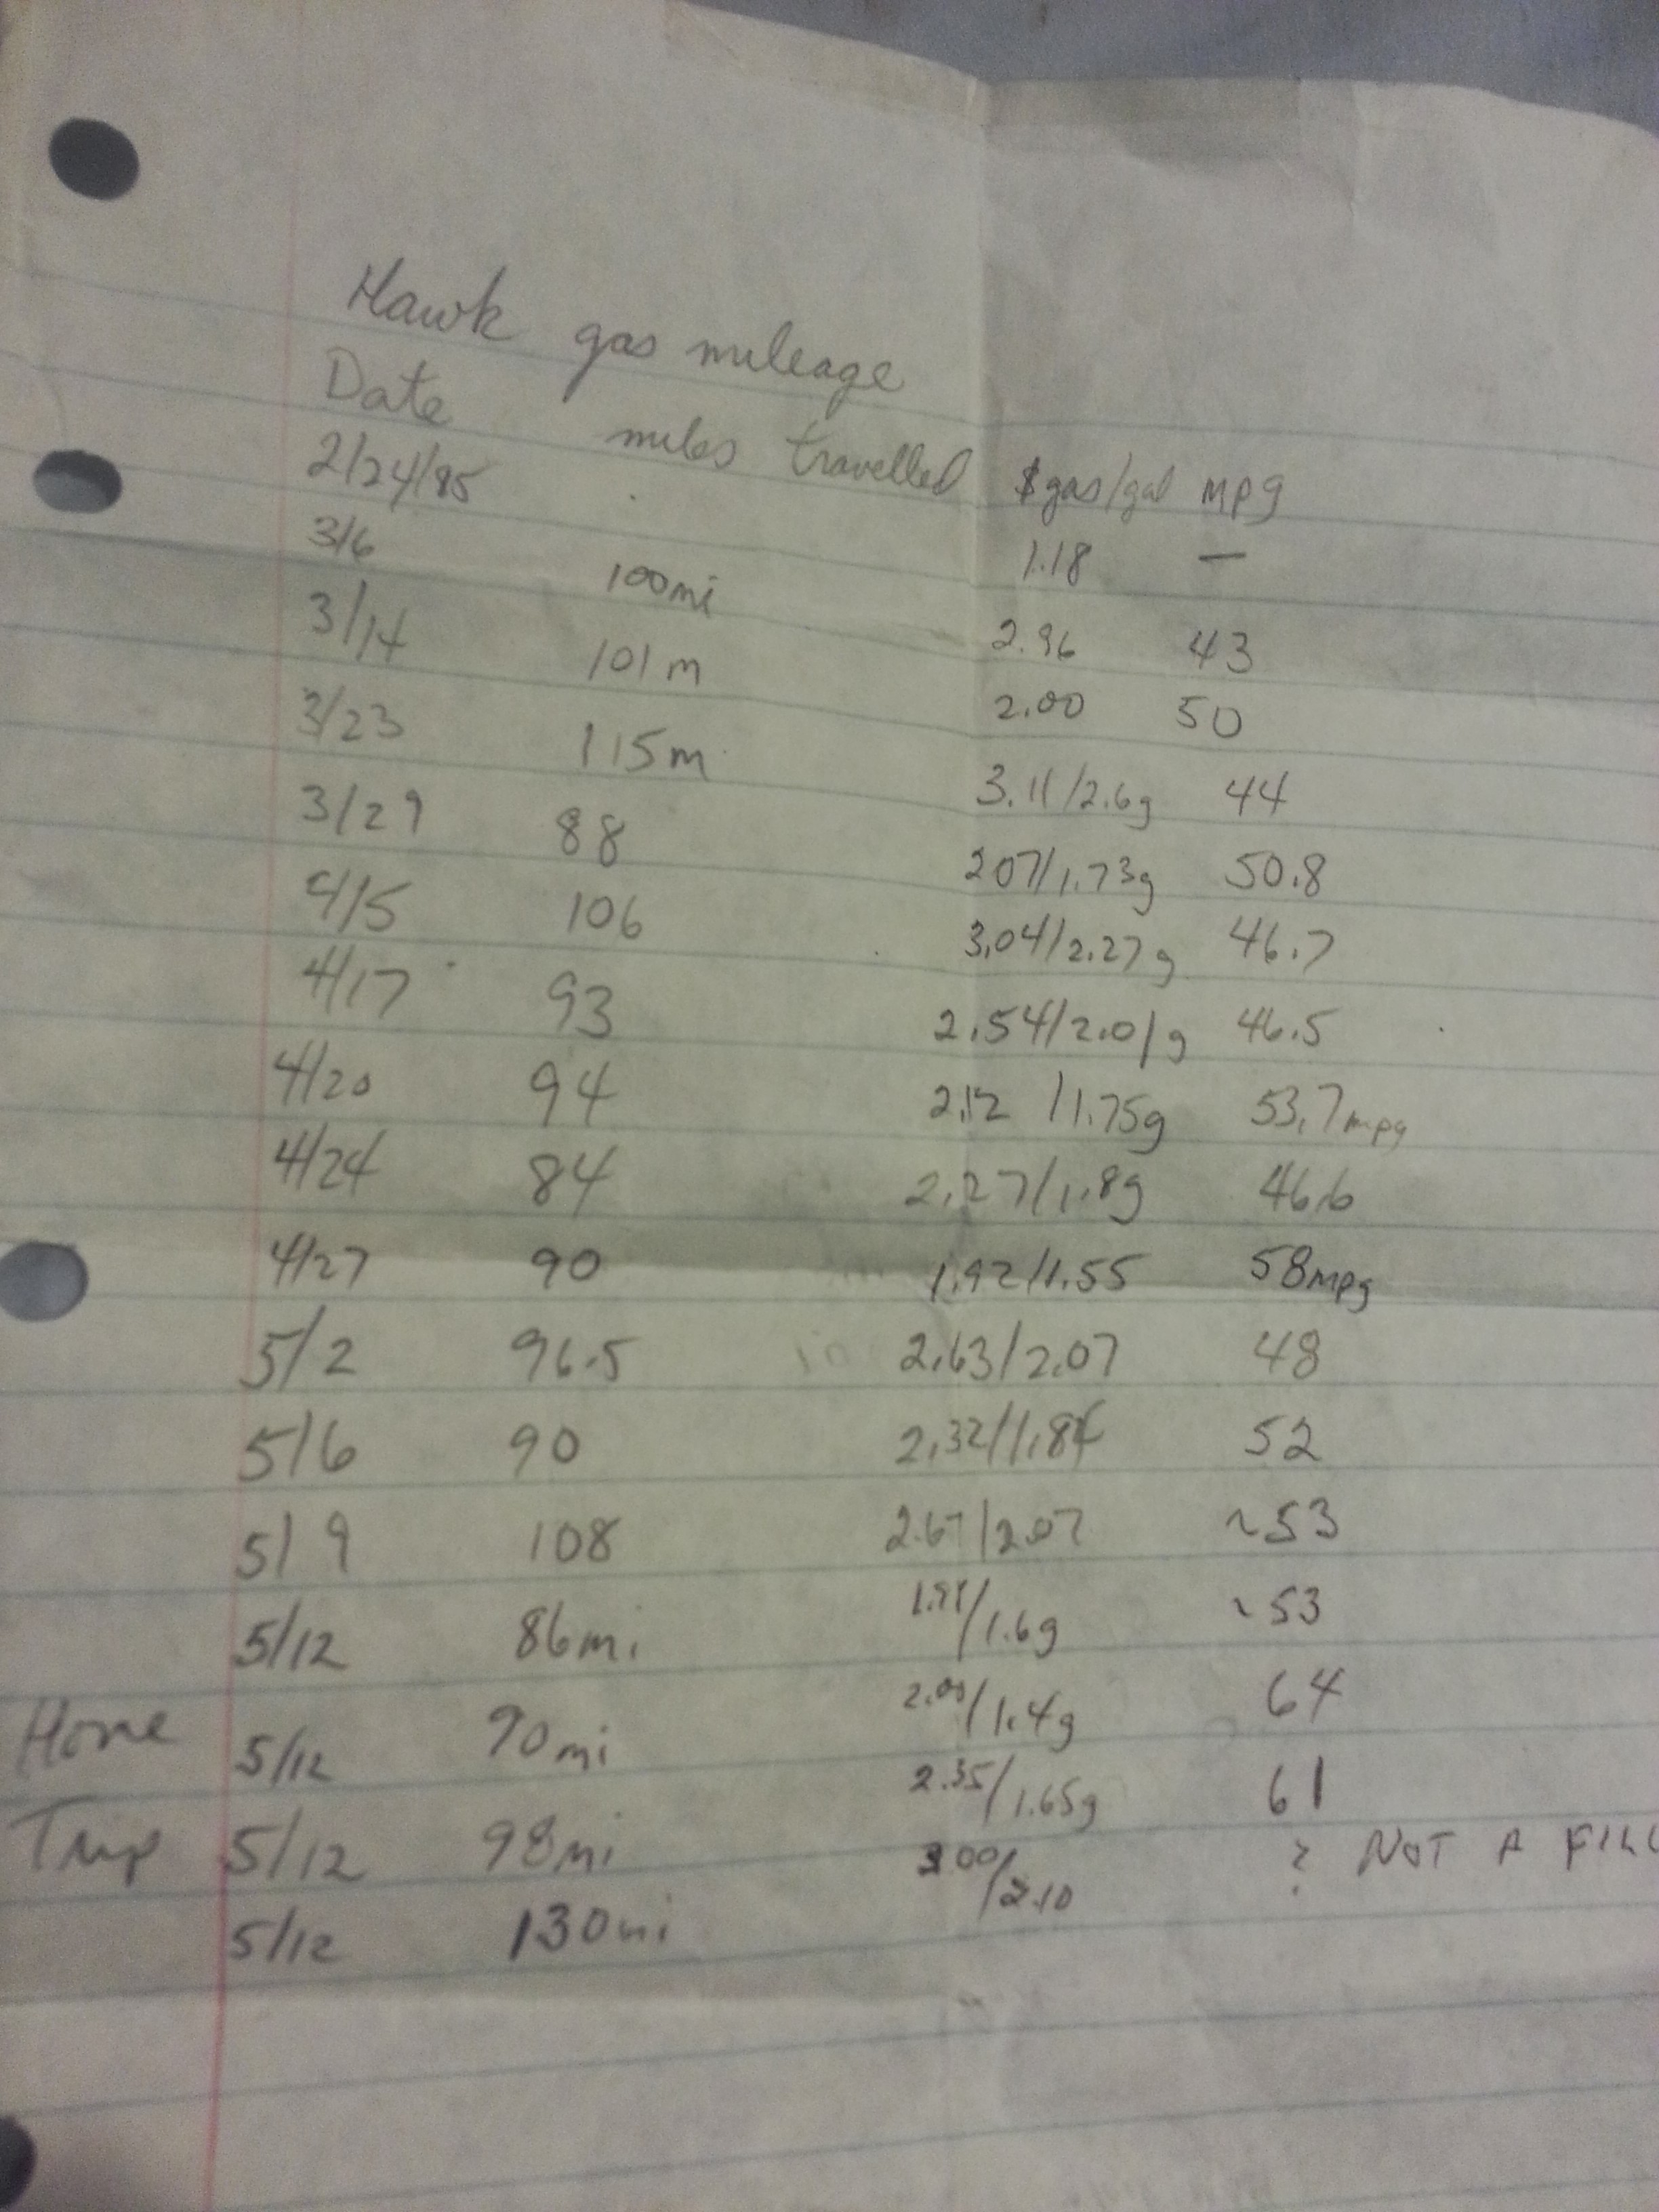 Hawk gas mileage
Date miles travelled $gas/gal mpg
2/24/85 1.18 —
3/6 100mi 2.96 43
3/14 101m 2.00 50
3/23 115m 3.11/2.6g 44
3/29 88 207/1.73g 50.8
4/5 106 3.04/2.27g 46.7
4/17 93 2.54/2.01g 46.5
4/20 94 2.12/1.75g 53.7mpg
4/24 84 2.27/1.8g 46.6
4/27 90 1.92/1.55 58mpg
5/2 96.5 2.63/2.07 48
5/6 90 2.32/1.84 52
5/9 108 2.67/2.07 ~53
5/12 86mi /1.6g ~53
Home 5/12 90mi 2.00/1.4g 64
Trip 5/12 98mi 2.35/1.65g 61
5/12 130mi 3.00/2.10 ? NOT A FILL